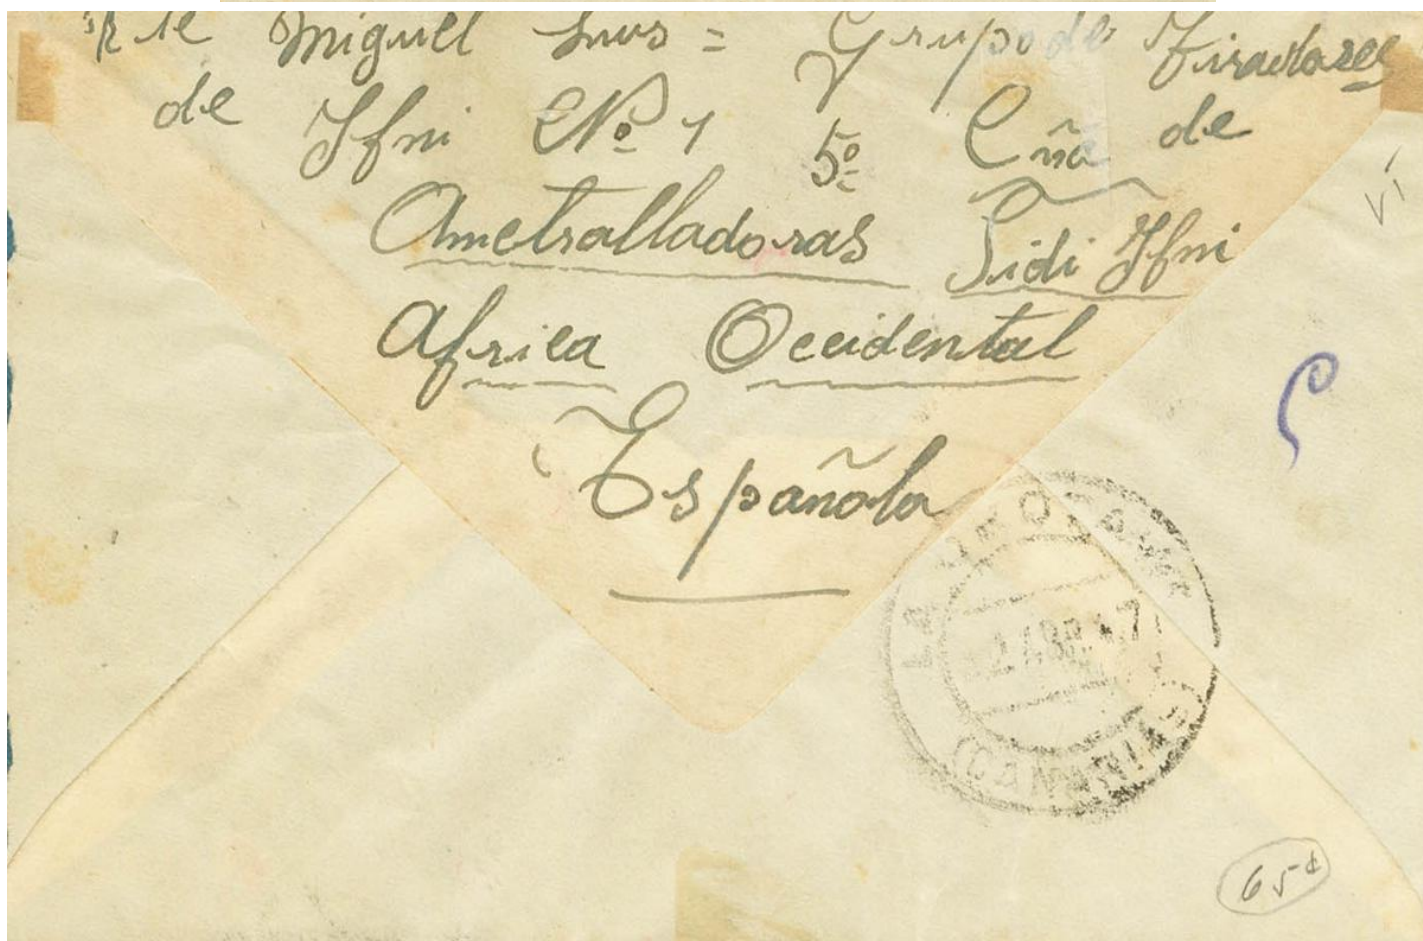 Rte Miguel Luis = Grupo de Tiradores
de Ifni Nº 1 5º Cñia de
Ametralladoras Sidi Ifni
Africa Occidental
Española
LA OROTAVA
ABR 47
(CANARIAS)
65¢